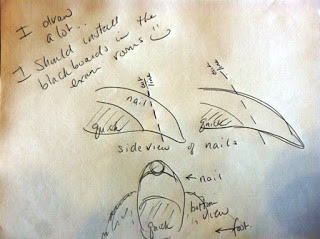 I draw
a lot...
I should install
blackboards in the
exam rooms
nail
quick
side view of nails
nail
bottom
view
quick
foot